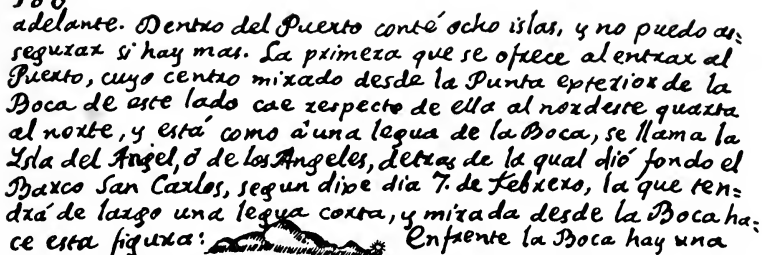 adelante. Dentro del Puerto conté ocho islas, y no puedo as=
segurar si hay mas. La primera que se ofrece al entrar al
Puerto, cuyo centro mirado desde la Punta exterior de la
Boca de este lado cae respecto de ella al nordeste quarta
al norte, y está como à una legua de la Boca, se llama la
Isla del Angel, ó de los Angeles, detras de la qual dió fondo el
Barco San Carlos, segun dixe dia 7. de Febrero, la que ten=
drá de largo una legua corta, y mirada desde la Boca ha=
ce esta figura: Enfrente la Boca hay una